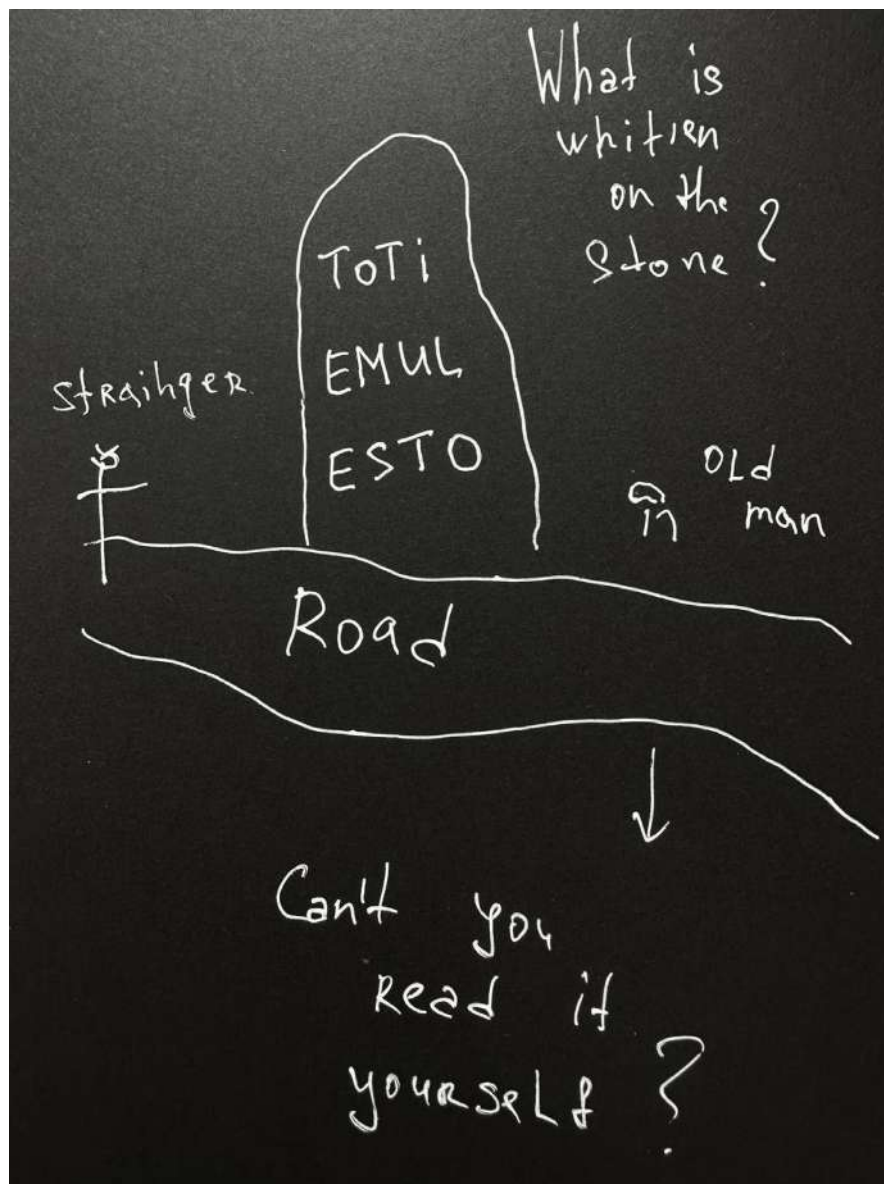 What is
whitten
on the
stone?
TOTi
EMUL
ESTO
strainger.
OLd
man
Road
Can't you
Read it
yourself?